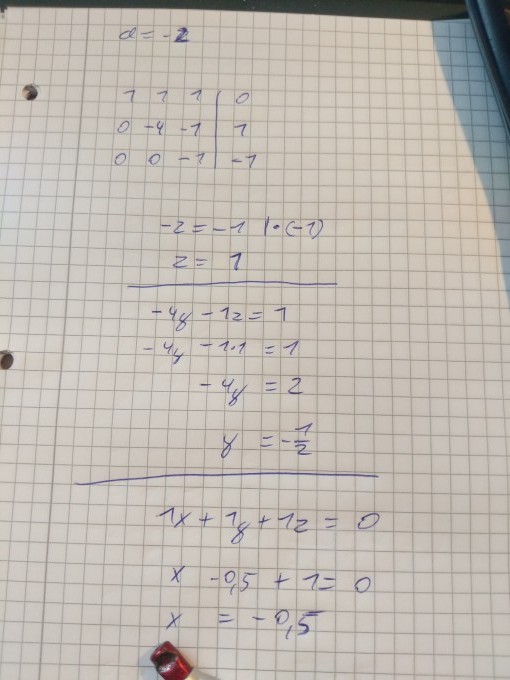 d = -2
1 1 1 | 0
0 -4 -1 | 1
0 0 -1 | -1
-z = -1 | · (-1)
z = 1
-4y - 1z = 1
-4y - 1·1 = 1
-4y = 2
y = -1/2
1x + 1y + 1z = 0
x -0,5 + 1 = 0
x = -0,5